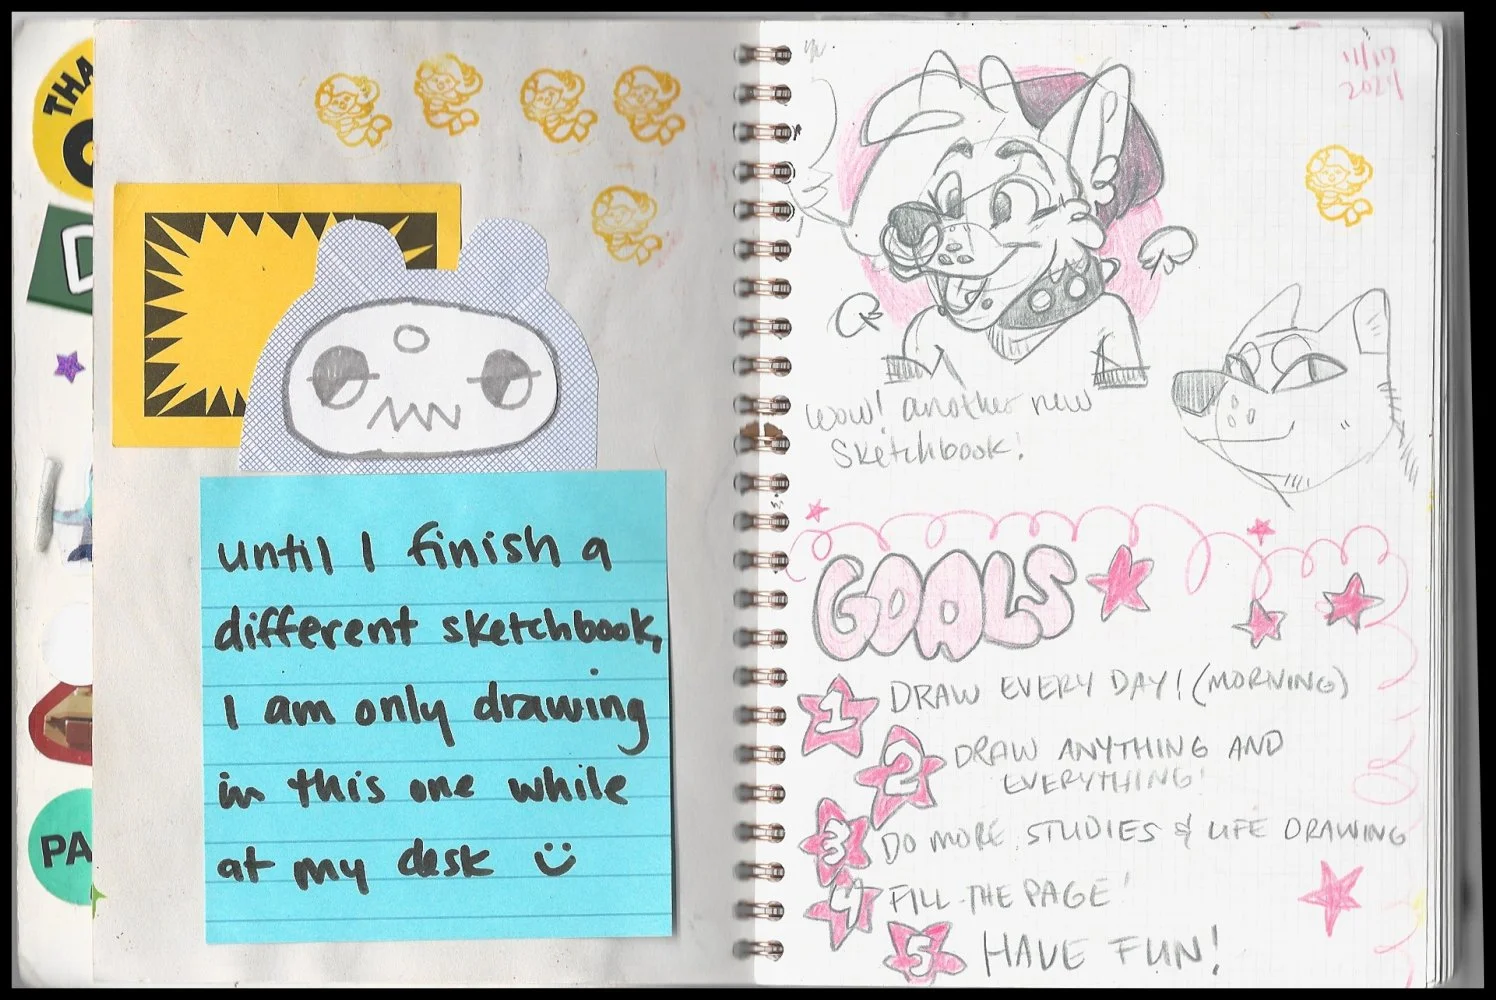 THA
D
PA
until I finish a
different sketchbook,
I am only drawing
in this one while
at my desk
11/17
2024
wow! another new
sketchbook!
GOALS
1 DRAW EVERY DAY! (MORNING)
2 DRAW ANYTHING AND
EVERYTHING!
3 DO MORE STUDIES & LIFE DRAWING
4 FILL THE PAGE!
5 HAVE FUN!